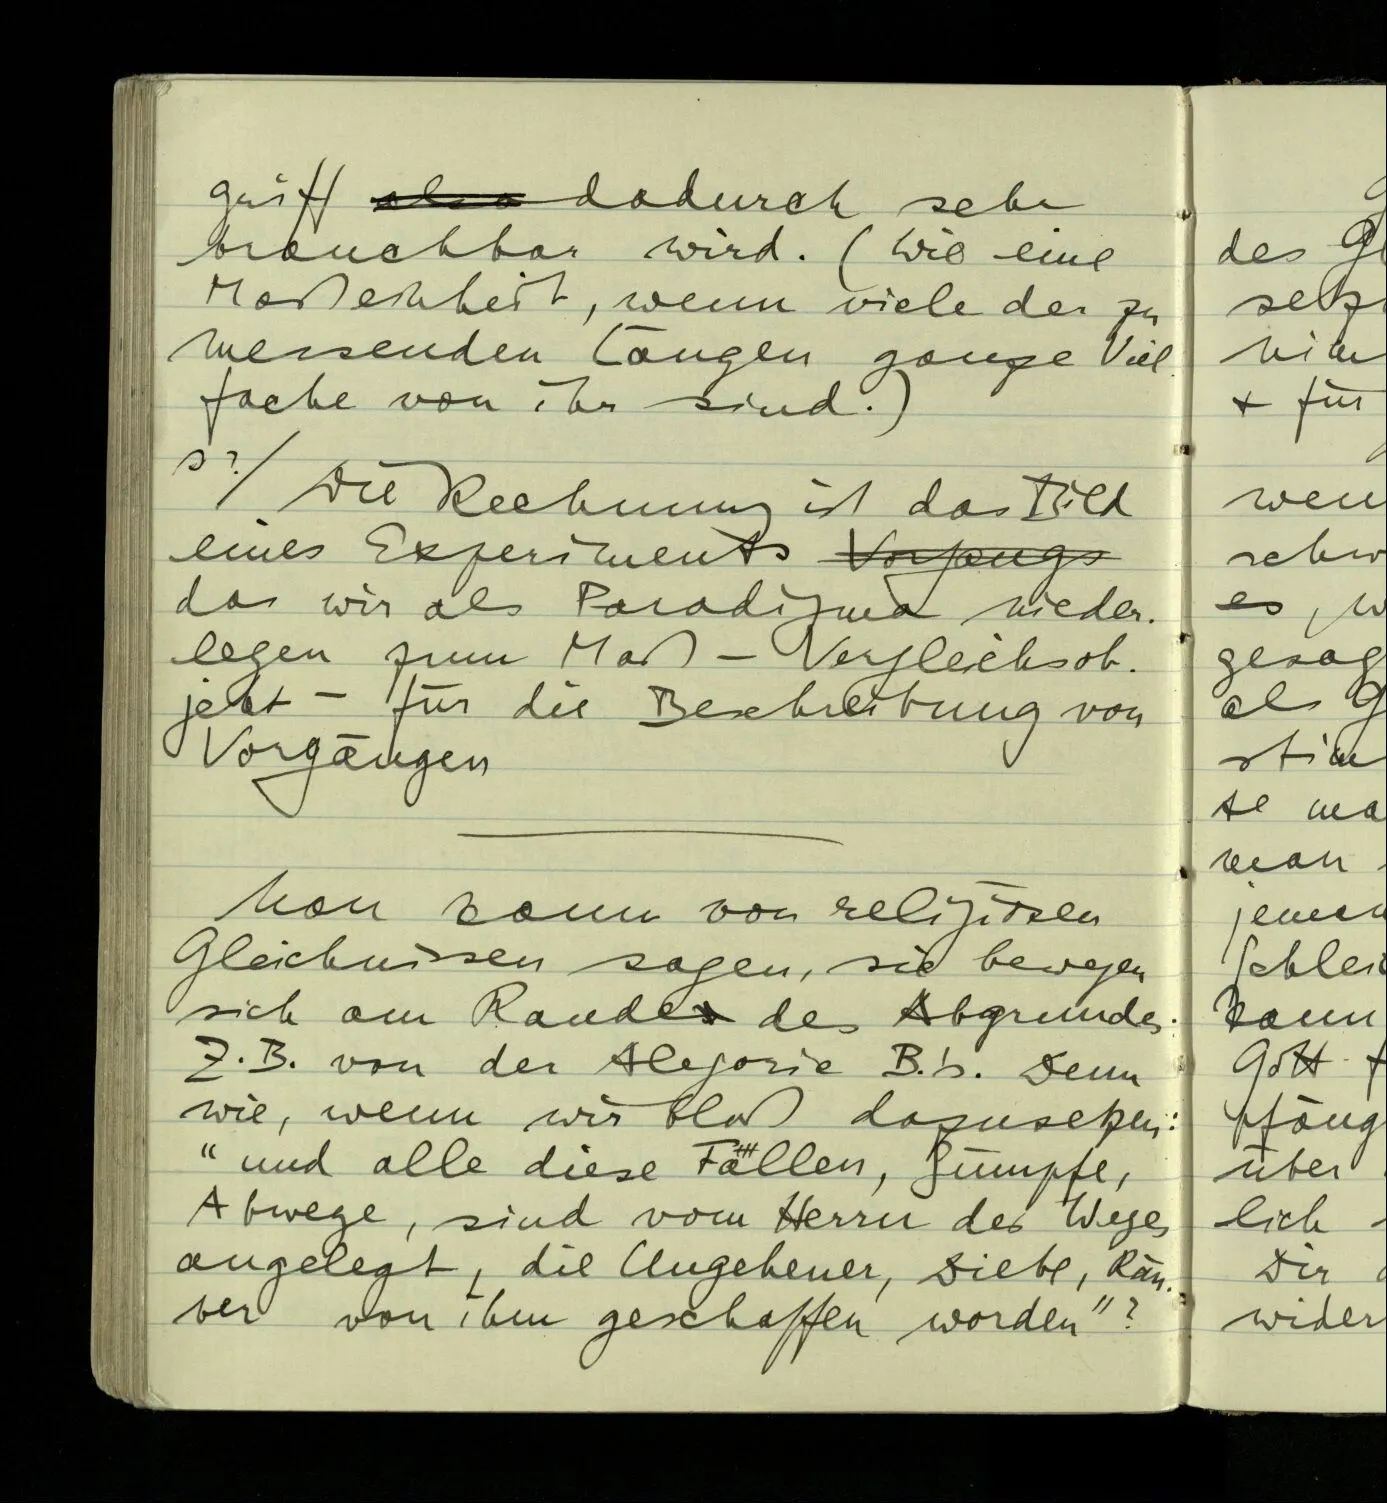 griff ~~also~~ dadurch sehr
brauchbar wird. (Wie eine
Maßeinheit, wenn viele der zu
messenden Längen ganze Viel
fache von ihr sind.)
s?/ Die Rechnung ist das Bild
eines Experiments ~~Vorgangs~~
das wir als Paradigma nieder-
legen zum Maß – Vergleichsob-
jekt – für die Beschreibung von
Vorgängen
Man kann von religiösen
Gleichnissen sagen, sie bewegen
sich am Rande des Abgrundes.
Z.B. von der Alegorie B.'s. Denn
wie, wenn wir bloß dazusetzen:
"und alle diese Fallen, Sümpfe,
Abwege, sind vom Herrn des Weges
angelegt, die Ungeheuer, Diebe, Räu-
ber von ihm geschaffen worden"?
des
wen
es, w
gesag
als G
man
kann
Gott
pfäng
über
lich
Dir
wider
+ für